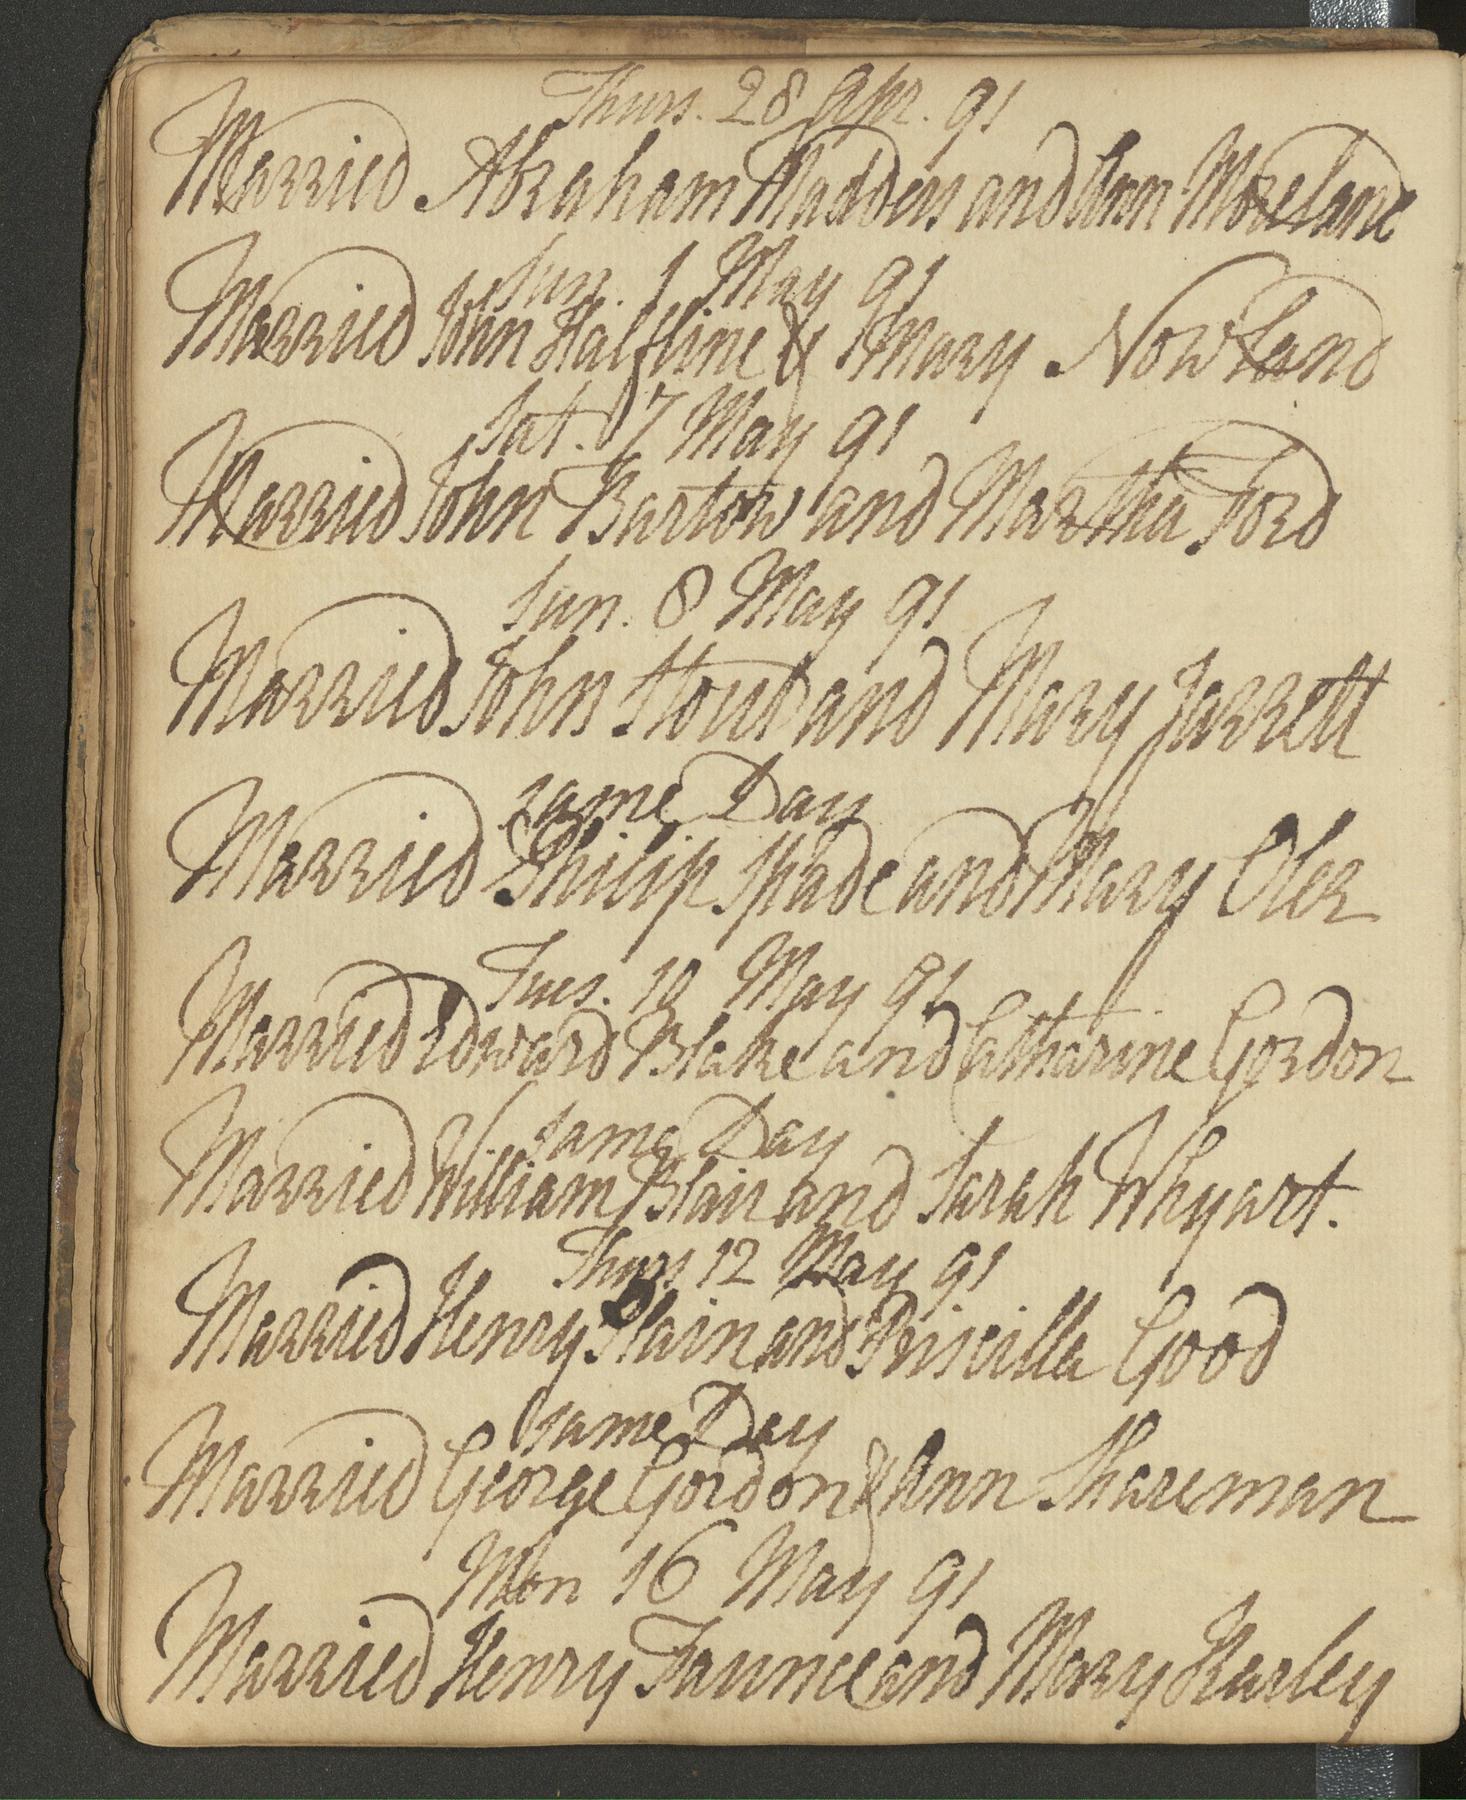 Thurs. 28 Apr. 91
Married Abraham Madders and Ann Moreland
Sun. 1 May 91
Married John Halfline & Mary Nowland
Sat. 7 May 91
Married John Bartow and Martha Ford
Sun. 8 May 91
Married John Stout and Mary Jarrett
same Day
Married Philip Spade and Mary Oler
Tues. 10 May 91
Married Edward Blake and Catharine Gordon
same Day
Married William Blair and Sarah Whyart.
Thurs 12 May 91
Married Henry and Priscilla Good
same Day
Married George Gordon & Ann Shareman
Mon 16 May 91
Married Henry Faunce and Mary Karley